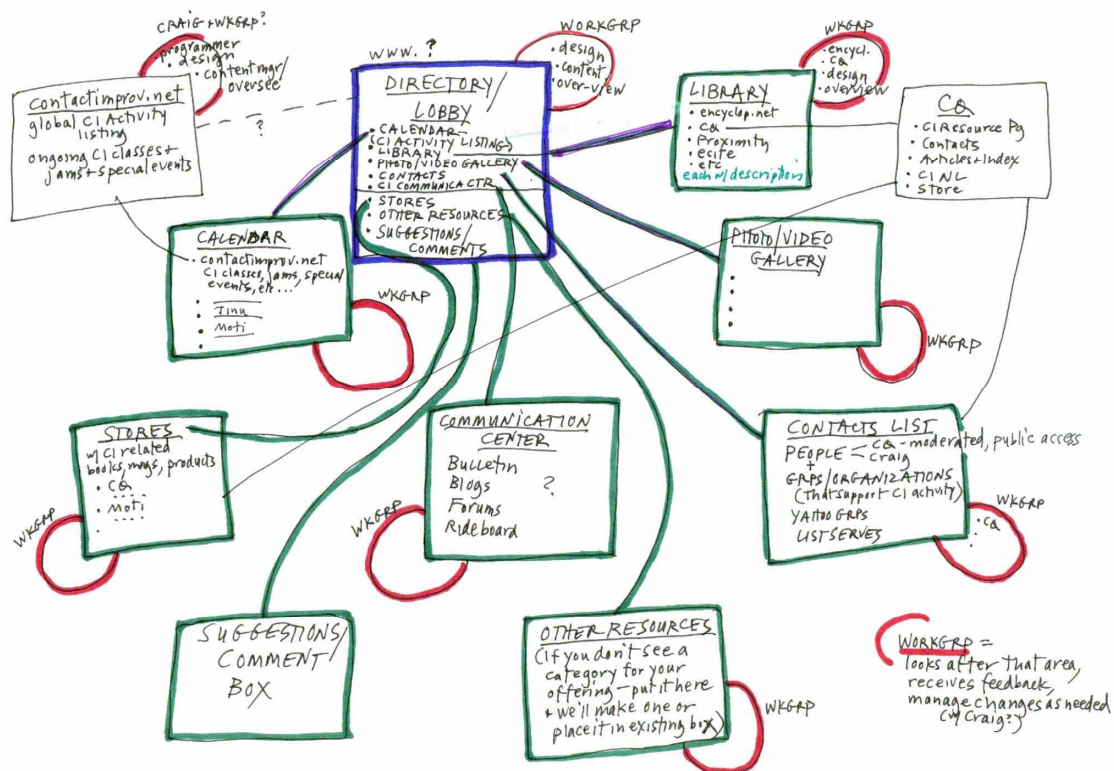 CRAIG + WKGRP?
• programmer
• design
• content mgr/
oversee
contactimprov.net
global CI Activity
listing
ongoing CI classes +
jams + special events
?
www. ?
DIRECTORY/
LOBBY
• CALENDAR -
(CI ACTIVITY LISTINGS)
• LIBRARY
• PHOTO/VIDEO GALLERY
• CONTACTS
• CI COMMUNICA CTR
• STORES
• OTHER RESOURCES
• SUGGESTIONS/
COMMENTS
WORKGRP
• design
• content
• over-view
LIBRARY
• encyclop.net
• CQ
• Proximity
• ecite
• etc
each w/ description
WKGRP
• encycl.
• CQ
• design
• overview
CQ
• CI Resource Pg
• Contacts
• Articles + Index
• CI NL
• Store
CALENDAR
• contactimprov.net
CI classes, jams, special
events, etc ...
•
•
• Moti
•
WKGRP
PHOTO/VIDEO
GALLERY
•
•
•
•
WKGRP
STORES
w/ CI related
books, mags, products
• CQ
• Moti
•
WKGRP
COMMUNICATION
CENTER
Bulletin
Blogs ?
Forums
Rideboard
WKGRP
CONTACTS LIST
PEOPLE - CQ - moderated, public access
- Craig
+
GRPS/ORGANIZATIONS
(that support CI activity)
YAHOO GRPS
LISTSERVES
WKGRP
• CQ
•
SUGGESTIONS/
COMMENT
BOX
OTHER RESOURCES
(If you don't see a
category for your
offering - put it here
+ we'll make one or
place it in existing box)
WKGRP
WORKGRP =
looks after that area,
receives feedback,
manage changes as needed
(w/ Craig?)